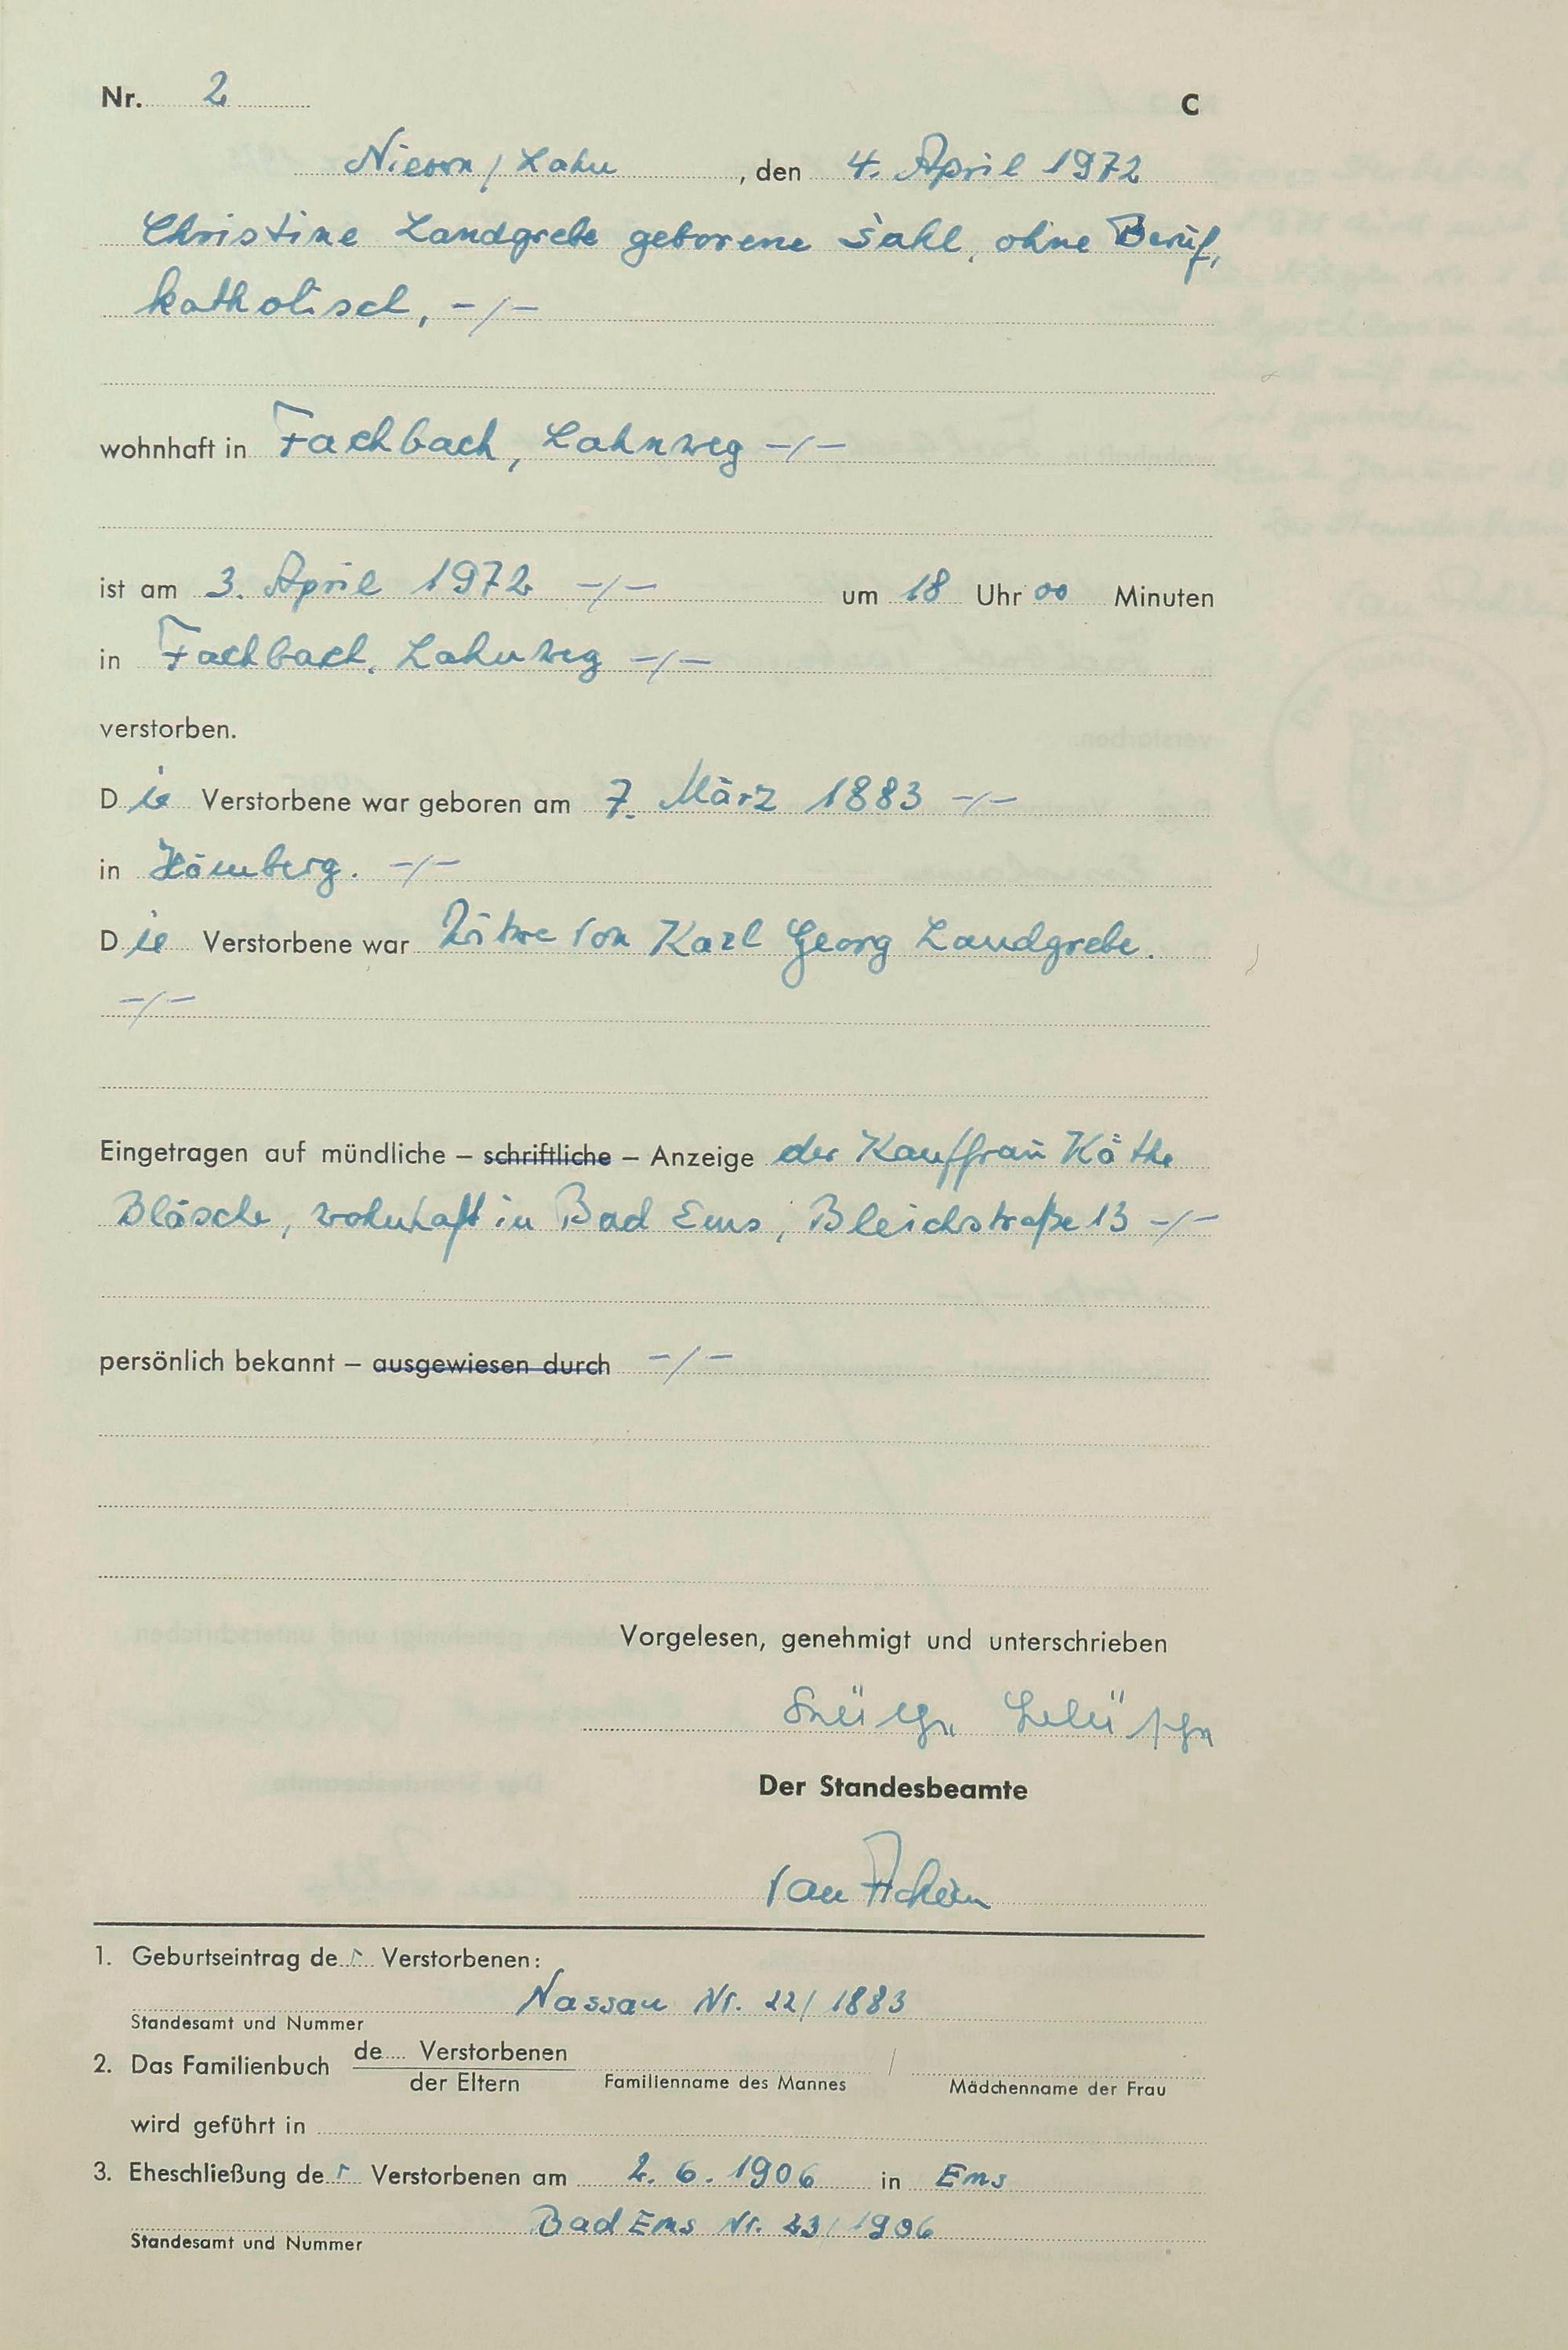 Nr. 2 C
Nievern / Lahn, den 4. April 1972
Christine Landgrebe geborene Sahl, ohne Beruf,
katholisch, -/-
wohnhaft in Fachbach, Lahnweg -/-
ist am 3. April 1972 -/- um 18 Uhr 00 Minuten
in Fachbach, Lahnweg -/-
verstorben.
Die Verstorbene war geboren am 7. März 1883 -/-
in Hömberg. -/-
Die Verstorbene war Witwe von Karl Georg Landgrebe.
-/-
Eingetragen auf mündliche – schriftliche – Anzeige der Kauffrau Käthe
Bläsche, wohnhaft in Bad Ems, Bleichstraße 13 -/-
persönlich bekannt – ausgewiesen durch -/-
Vorgelesen, genehmigt und unterschrieben
Der Standesbeamte
1. Geburtseintrag der Verstorbenen:
Nassau Nr. 22/1883
Standesamt und Nummer
2. Das Familienbuch de.... Verstorbenen
der Eltern Familienname des Mannes / Mädchenname der Frau
wird geführt in
3. Eheschließung der Verstorbenen am 2.6.1906 in Ems
Bad Ems Nr. 23/1906
Standesamt und Nummer